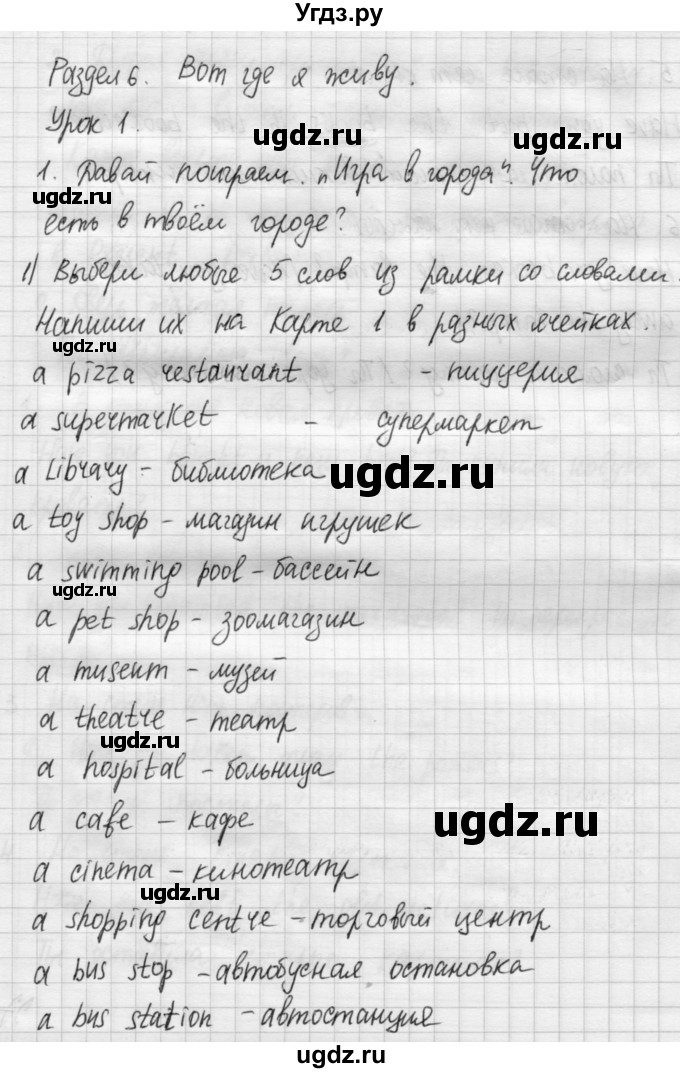 Угдз.ру
Раздел 6. Вот где я живу.
Урок 1.
1. Давай поиграем. „Игра в города“. Что
есть в твоём городе?
1) Выбери любые 5 слов из рамки со словами.
Напиши их на Карте 1 в разных ячейках.
a pizza restaurant - пиццерия
a supermarket - супермаркет
a library - библиотека
a toy shop - магазин игрушек
a swimming pool - бассейн
a pet shop - зоомагазин
a museum - музей
a theatre - театр
a hospital - больница
a cafe - кафе
a cinema - кинотеатр
a shopping centre - торговый центр
a bus stop - автобусная остановка
a bus station - автостанция
ugdz.ru
ugdz.ru
ugdz.ru
ugdz.ru
ugdz.ru
ugdz.ru
ugdz.ru
ugdz.ru
ugdz.ru
ugdz.ru